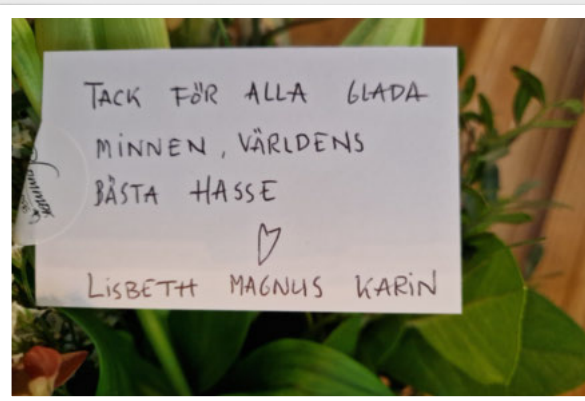 TACK FÖR ALLA GLADA
MINNEN, VÄRLDENS
BÄSTA HASSE
LISBETH MAGNUS KARIN